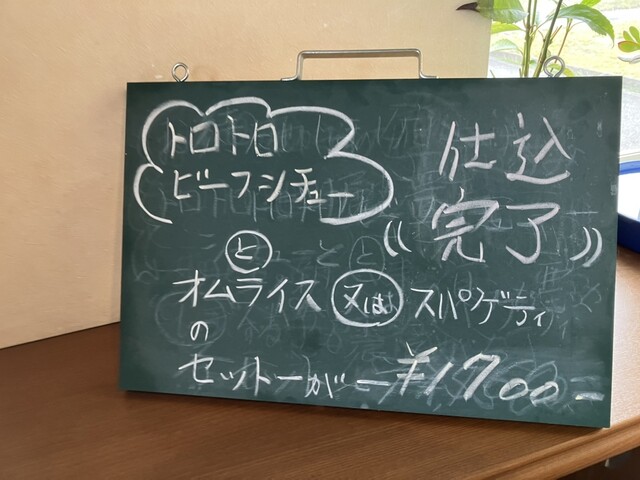 トロトロ
ビーフシチュー
仕込
完了
と
オムライス 又は スパゲティ
の
セットーがー¥1700ー